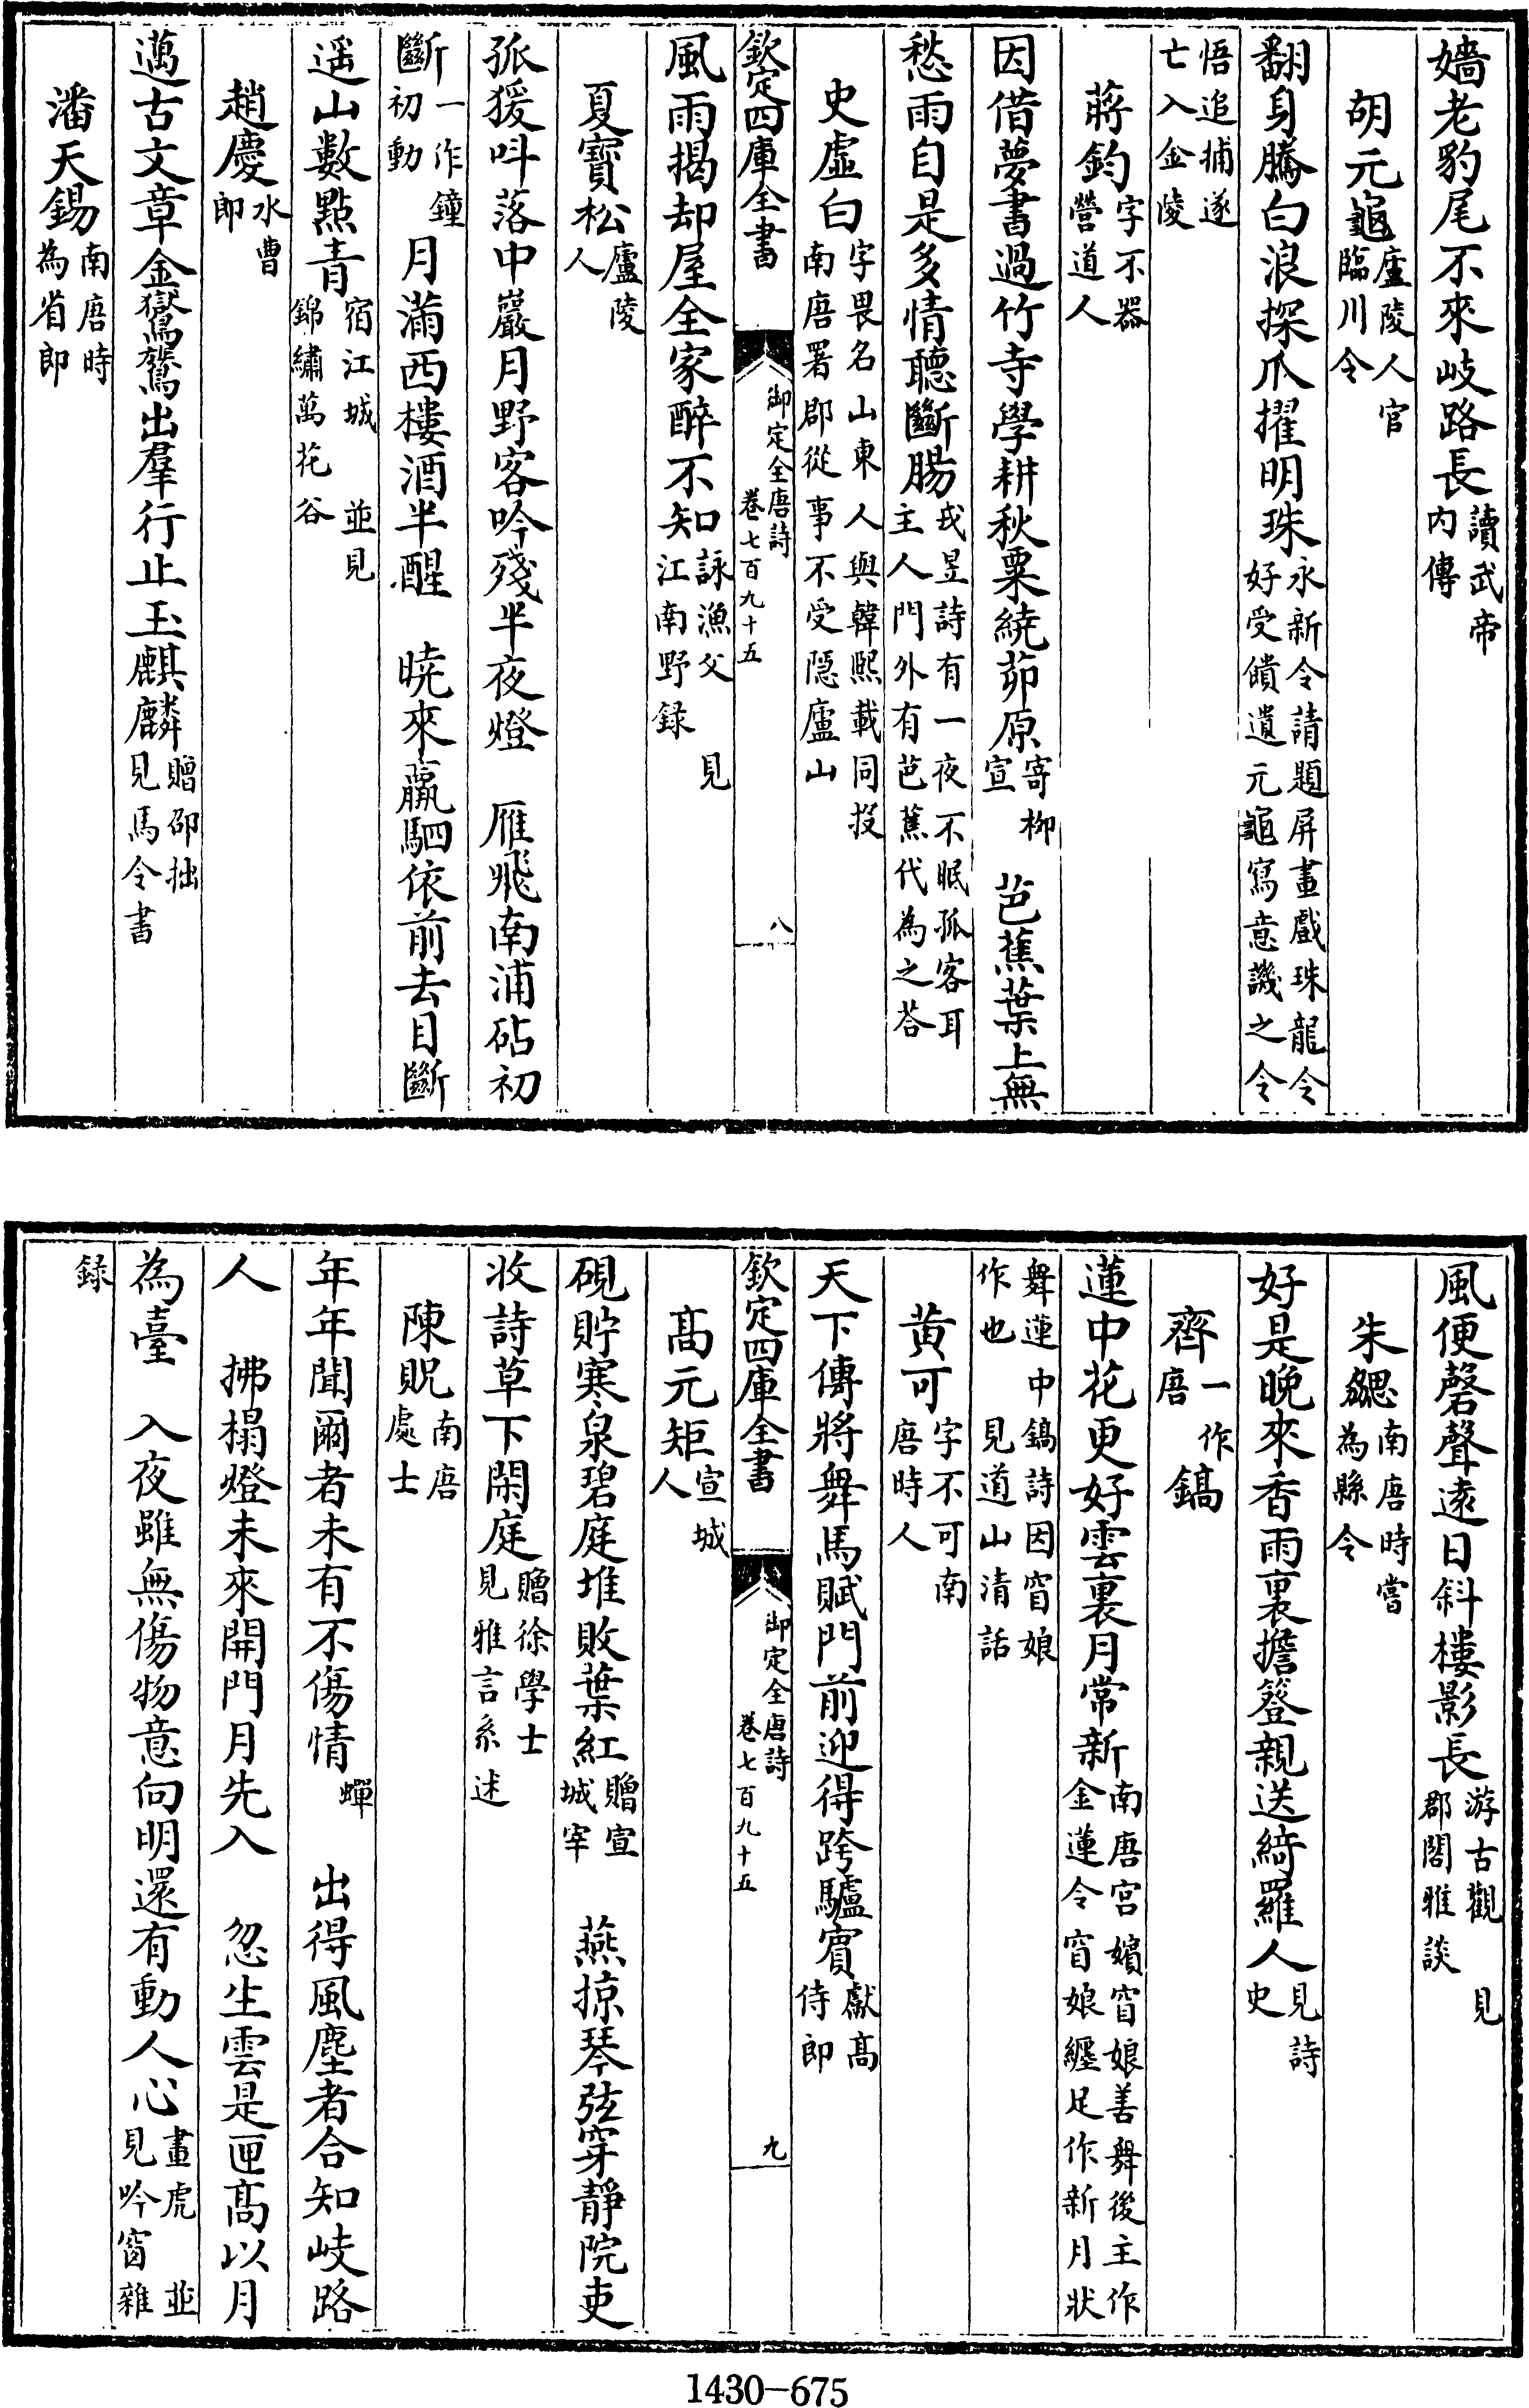 嬙老豹尾不來岐路長讀武帝内傳
胡元龜廬陵人官臨川令
翻身騰白浪探爪擢明珠永新令請題屏畫戲珠龍令好受饋遺元龜寫意譏之令
悟追捕遂亡入金陵
蔣鈞字不器營道人
因借夢書過竹寺學耕秋粟繞茆原寄柳宣　芭蕉葉上無
愁雨自是多情聽斷腸戎昱詩有一夜不眠孤客耳主人門外有芭蕉代為之荅
史虛白字畏名山東人與韓熙載同投南唐署郡從事不受隱廬山
欽定四庫全書　御定全唐詩卷七百九十五　八
風雨揭却屋全家醉不知詠漁父　見江南野録
夏寶松廬陵人
孤猨呌落中巖月野客吟殘半夜燈　雁飛南浦砧初
斷一作鐘初動月滿西樓酒半醒　曉來羸駟依前去目斷
遥山數點青宿江城　並見錦繡萬花谷
趙慶水曹郎
邁古文章金鸑鷟出羣行止玉麒麟贈邵拙見馬令書
潘天錫南唐時為省郎
風便磬聲遠日斜樓影長游古觀　見郡閣雅談
朱勰南唐時嘗為縣令
好是晚來香雨裏擔簦親送綺羅人見詩史
齊唐一作鎬
蓮中花更好雲裏月常新南唐宫嬪窅娘善舞後主作金蓮令窅娘纏足作新月狀
舞蓮中鎬詩因窅娘作也　見道山清話
黄可字不可南唐時人
天下傳將舞馬賦門前迎得跨驢賓獻髙侍郎
欽定四庫全書　御定全唐詩卷七百九十五　九
髙元矩宣城人
硯貯寒泉碧庭堆敗葉紅贈宣城宰　燕掠琴弦穿静院吏
收詩草下閑庭贈徐學士見雅言系述
陳貺南唐處士
年年聞爾者未有不傷情蟬　出得風塵者合知岐路
人　拂榻燈未來開門月先入　忽生雲是匣髙以月
為臺　入夜雖無傷物意向明還有動人心畫虎　並見吟窗雜
録
1430-675